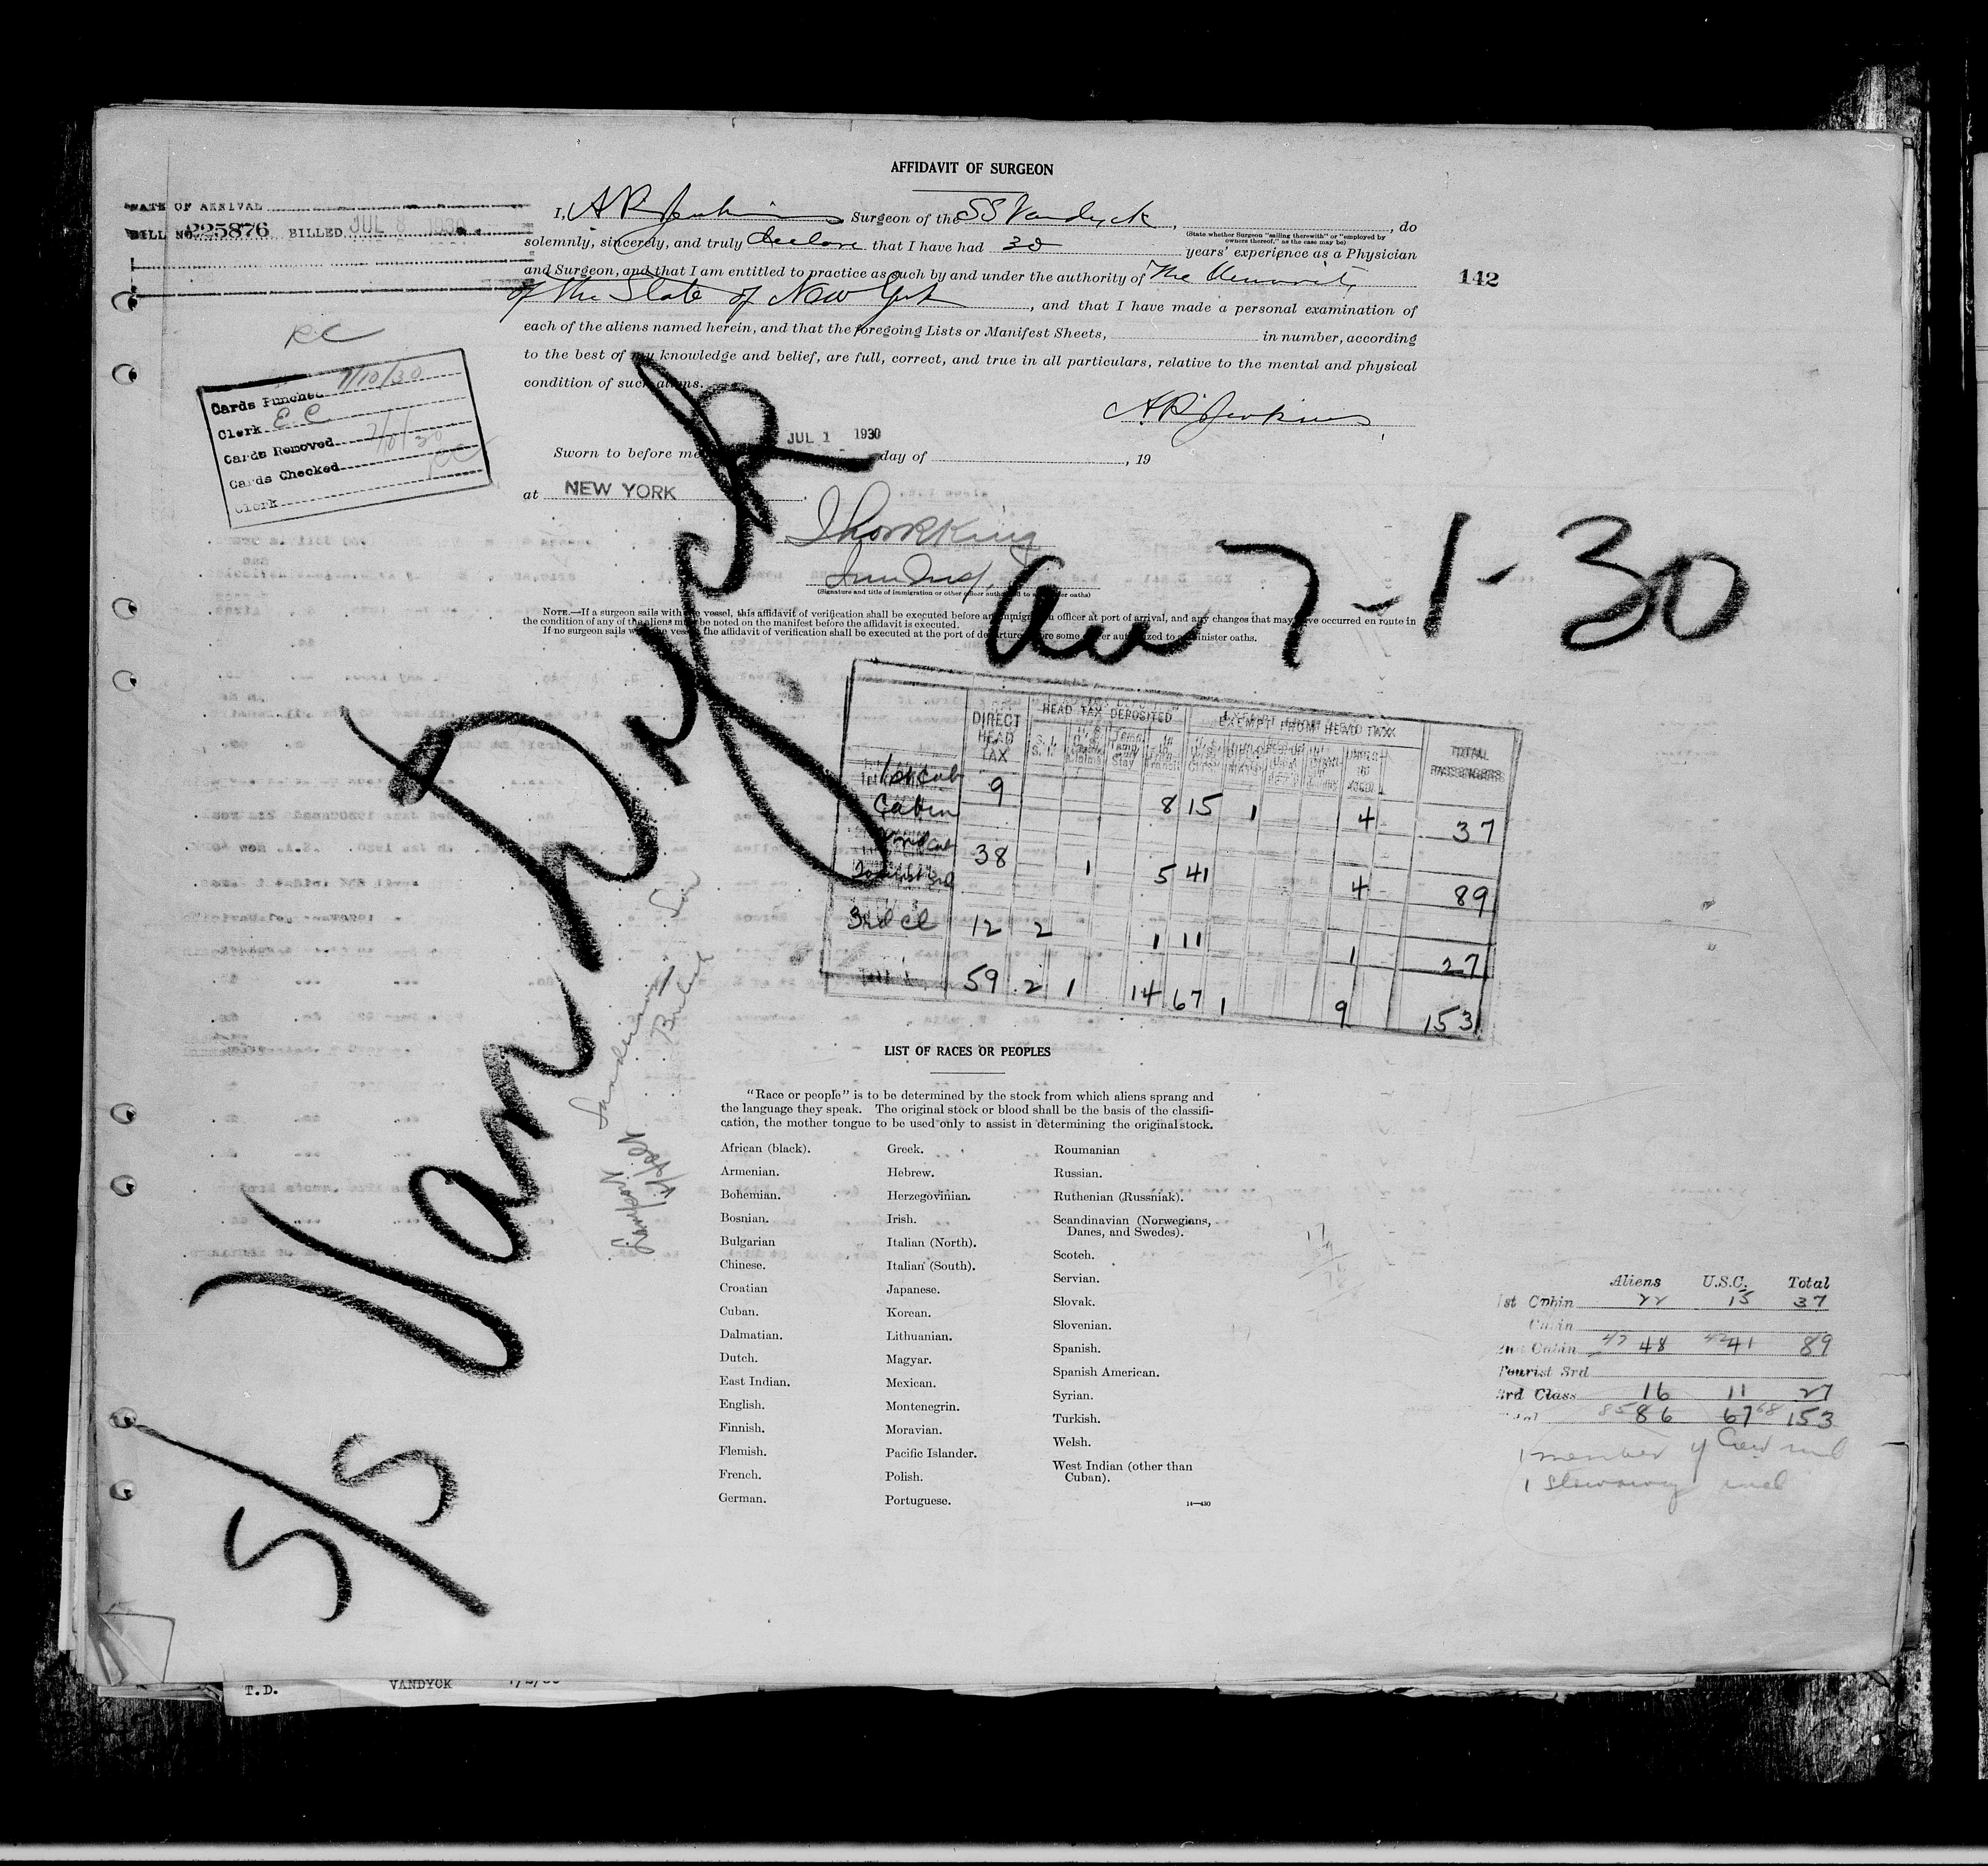 AFFIDAVIT OF SURGEON
DATE OF ARRIVAL
BILL NO. 225876 BILLED JUL 8 1930
I, A R Jenkins Surgeon of the SS Vandyck, , do
(State whether Surgeon "sailing therewith" or "employed by owners thereof," as the case may be)
solemnly, sincerely, and truly declare that I have had 30 years' experience as a Physician
and Surgeon, and that I am entitled to practice as such by and under the authority of The University
of the State of New York, and that I have made a personal examination of
each of the aliens named herein, and that the foregoing Lists or Manifest Sheets, in number, according
to the best of my knowledge and belief, are full, correct, and true in all particulars, relative to the mental and physical
condition of such aliens.
142
A R Jenkins
RC
Cards Punched 7/10/30
Clerk E.C
Cards Removed
Cards Checked
Clerk
JUL 1 1930
Sworn to before me day of , 19
at NEW YORK
(Signature and title of immigration or other officer authorized to administer oaths)
NOTE.—If a surgeon sails with the vessel, this affidavit of verification shall be executed before an immigration officer at port of arrival, and any changes that may have occurred en route in
the condition of any of the aliens must be noted on the manifest before the affidavit is executed.
If no surgeon sails with the vessel, the affidavit of verification shall be executed at the port of departure before some officer authorized to administer oaths.
S/S Van Dyck
7-1-30
DIRECT HEAD TAX
HEAD TAX DEPOSITED
EXEMPT FROM HEAD TAX
TOTAL PASSENGERS
1st Cab
Cabin
9 8 15 1 4 37
2nd Cab
38 1 5 41 4 89
Tourist 3rd
3rd Cl 12 2 1 11 1 27
Total 59 2 1 14 67 1 9 153
LIST OF RACES OR PEOPLES
"Race or people" is to be determined by the stock from which aliens sprang and
the language they speak. The original stock or blood shall be the basis of the classifi-
cation, the mother tongue to be used only to assist in determining the original stock.
African (black).
Armenian.
Bohemian.
Bosnian.
Bulgarian
Chinese.
Croatian
Cuban.
Dalmatian.
Dutch.
East Indian.
English.
Finnish.
Flemish.
French.
German.
Greek.
Hebrew.
Herzegovinian.
Irish.
Italian (North).
Italian (South).
Japanese.
Korean.
Lithuanian.
Magyar.
Mexican.
Montenegrin.
Moravian.
Pacific Islander.
Polish.
Portuguese.
Roumanian
Russian.
Ruthenian (Russniak).
Scandinavian (Norwegians,
Danes, and Swedes).
Scotch.
Servian.
Slovak.
Slovenian.
Spanish.
Spanish American.
Syrian.
Turkish.
Welsh.
West Indian (other than
Cuban).
14—430
Aliens U.S.C. Total
1st Cabin 22 15 37
Cabin
2nd Cabin 47 48 42 41 89
Tourist 3rd
3rd Class 16 11 27
Total 85 86 67 68 153
1 member of Crew incl
1 Stowaway incl
T.D. VANDYCK